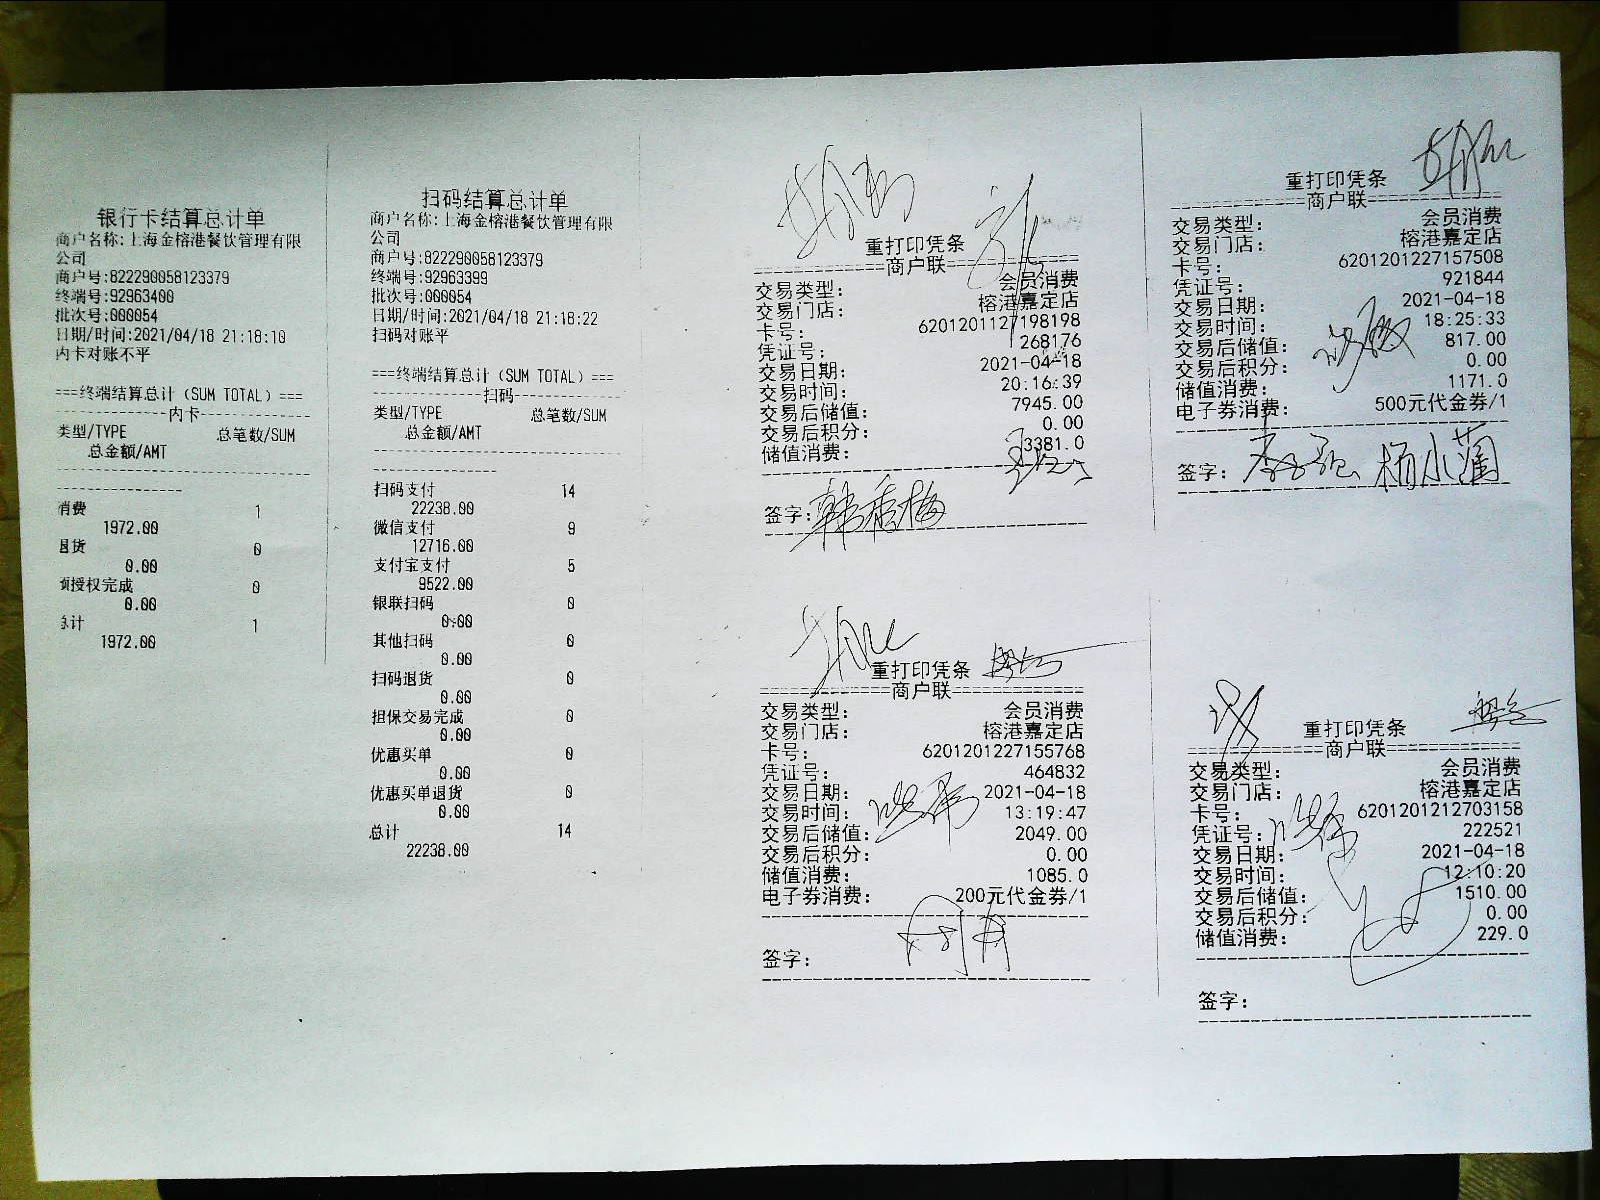 银行卡结算总计单
商户名称:上海金榕港餐饮管理有限
公司
商户号:822290058123379
终端号:92963400
批次号:000054
日期/时间:2021/04/18 21:18:10
内卡对账不平
===终端结算总计(SUM TOTAL)===
--------------内卡--------------
类型/TYPE 总笔数/SUM
总金额/AMT
消费 1
1972.00
退货 0
0.00
预授权完成 0
0.00
总计 1
1972.00
扫码结算总计单
商户名称:上海金榕港餐饮管理有限
公司
商户号:822290058123379
终端号:92963399
批次号:000054
日期/时间:2021/04/18 21:18:22
扫码对账平
===终端结算总计(SUM TOTAL)===
--------------扫码--------------
类型/TYPE 总笔数/SUM
总金额/AMT
扫码支付 14
22238.00
微信支付 9
12716.00
支付宝支付 5
9522.00
银联扫码 0
0.00
其他扫码 0
0.00
扫码退货 0
0.00
担保交易完成 0
0.00
优惠买单 0
0.00
优惠买单退货 0
0.00
总计 14
22238.00
重打印凭条
=============商户联=============
交易类型: 会员消费
交易门店: 榕港嘉定店
卡号: 6201201127198198
凭证号: 268176
交易日期: 2021-04-18
交易时间: 20:16:39
交易后储值: 7945.00
交易后积分: 0.00
储值消费: 3381.0
签字: 韩香梅
重打印凭条
=============商户联=============
交易类型: 会员消费
交易门店: 榕港嘉定店
卡号: 6201201227157508
凭证号: 921844
交易日期: 2021-04-18
交易时间: 18:25:33
交易后储值: 817.00
交易后积分: 0.00
储值消费: 1171.0
电子券消费: 500元代金券/1
签字: 杨小蘭
重打印凭条
=============商户联=============
交易类型: 会员消费
交易门店: 榕港嘉定店
卡号: 6201201227155768
凭证号: 464832
交易日期: 2021-04-18
交易时间: 13:19:47
交易后储值: 2049.00
交易后积分: 0.00
储值消费: 1085.0
电子券消费: 200元代金券/1
签字:
重打印凭条
=============商户联=============
交易类型: 会员消费
交易门店: 榕港嘉定店
卡号: 6201201212703158
凭证号: 222521
交易日期: 2021-04-18
交易时间: 12:10:20
交易后储值: 1510.00
交易后积分: 0.00
储值消费: 229.0
签字: